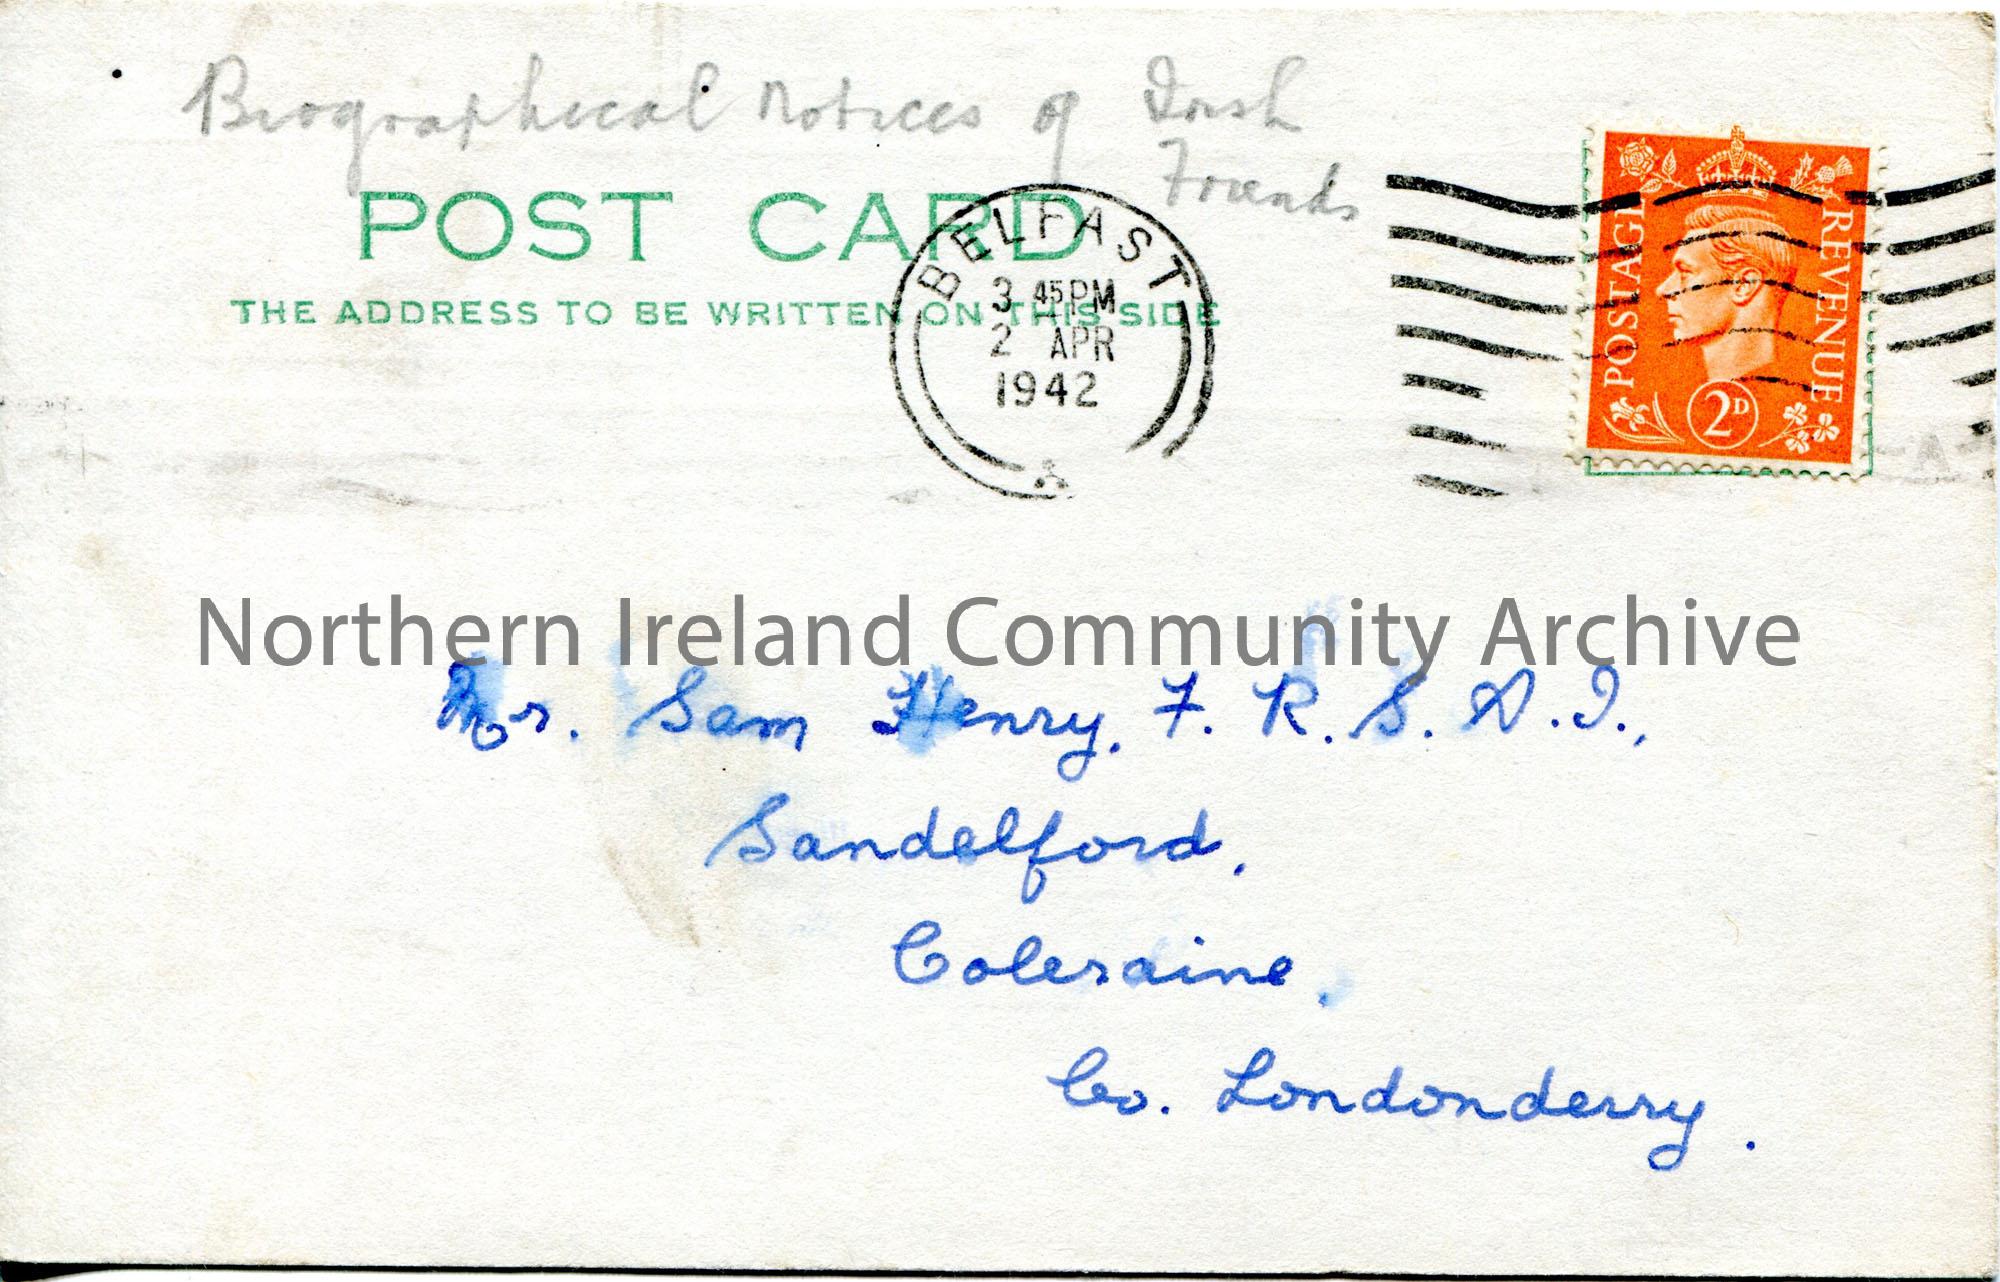 Biographical Notices of Irish
Friends
POST CARD
THE ADDRESS TO BE WRITTEN ON THIS SIDE
BELFAST
3 45 PM
2 APR
1942
A
POSTAGE
REVENUE
2D
Northern Ireland Community Archive
Mr. Sam Henry, F. R. S. A. I.,
Sandelford,
Coleraine,
Co. Londonderry.